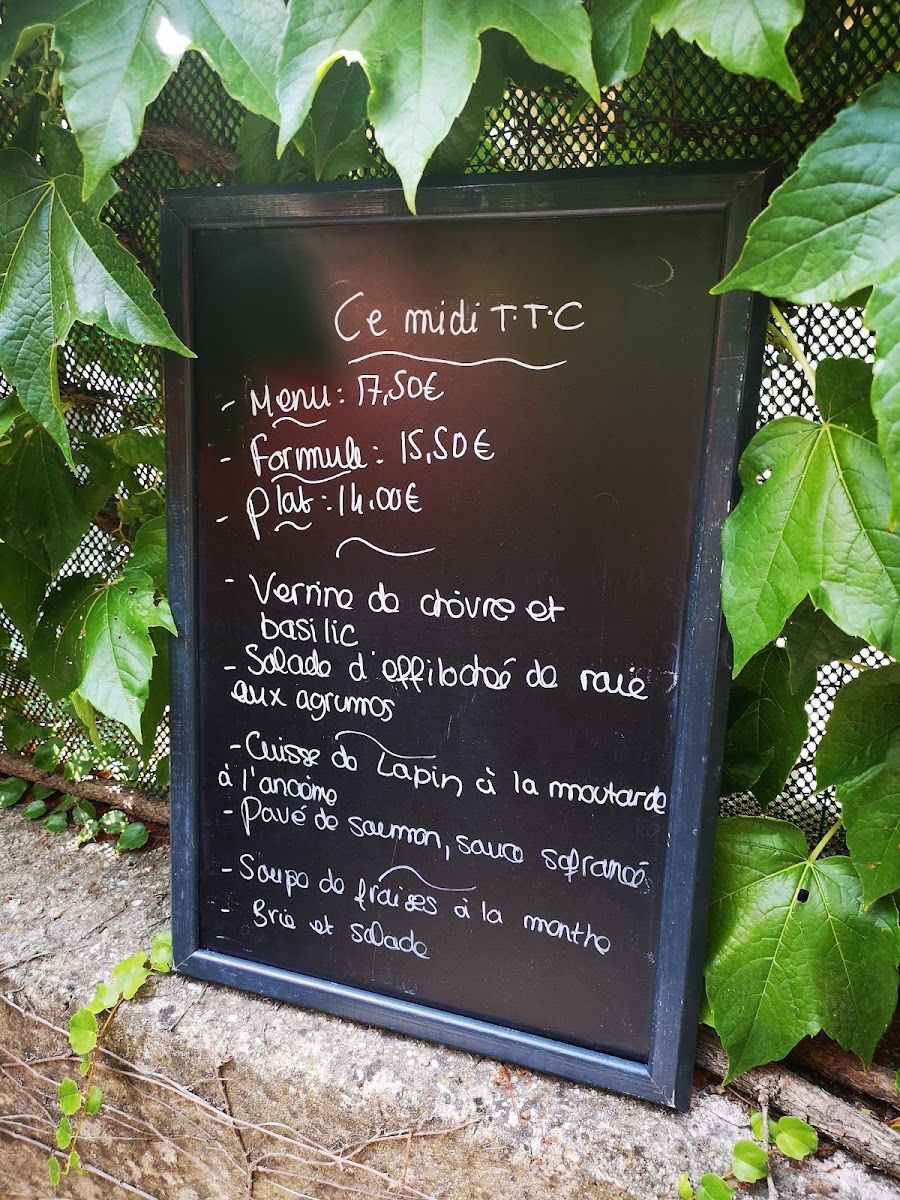 Ce midi T.T.C
- Menu : 17,50€
- Formule : 15,50€
- Plat : 14.00€
- Verrine de chèvre et
basilic
- Salade d'effilochée de raie
aux agrumes
- Cuisse de Lapin à la moutarde
à l'ancienne
- Pavé de saumon, sauce safranée
- Soupe de fraises à la menthe
- Brie et salade